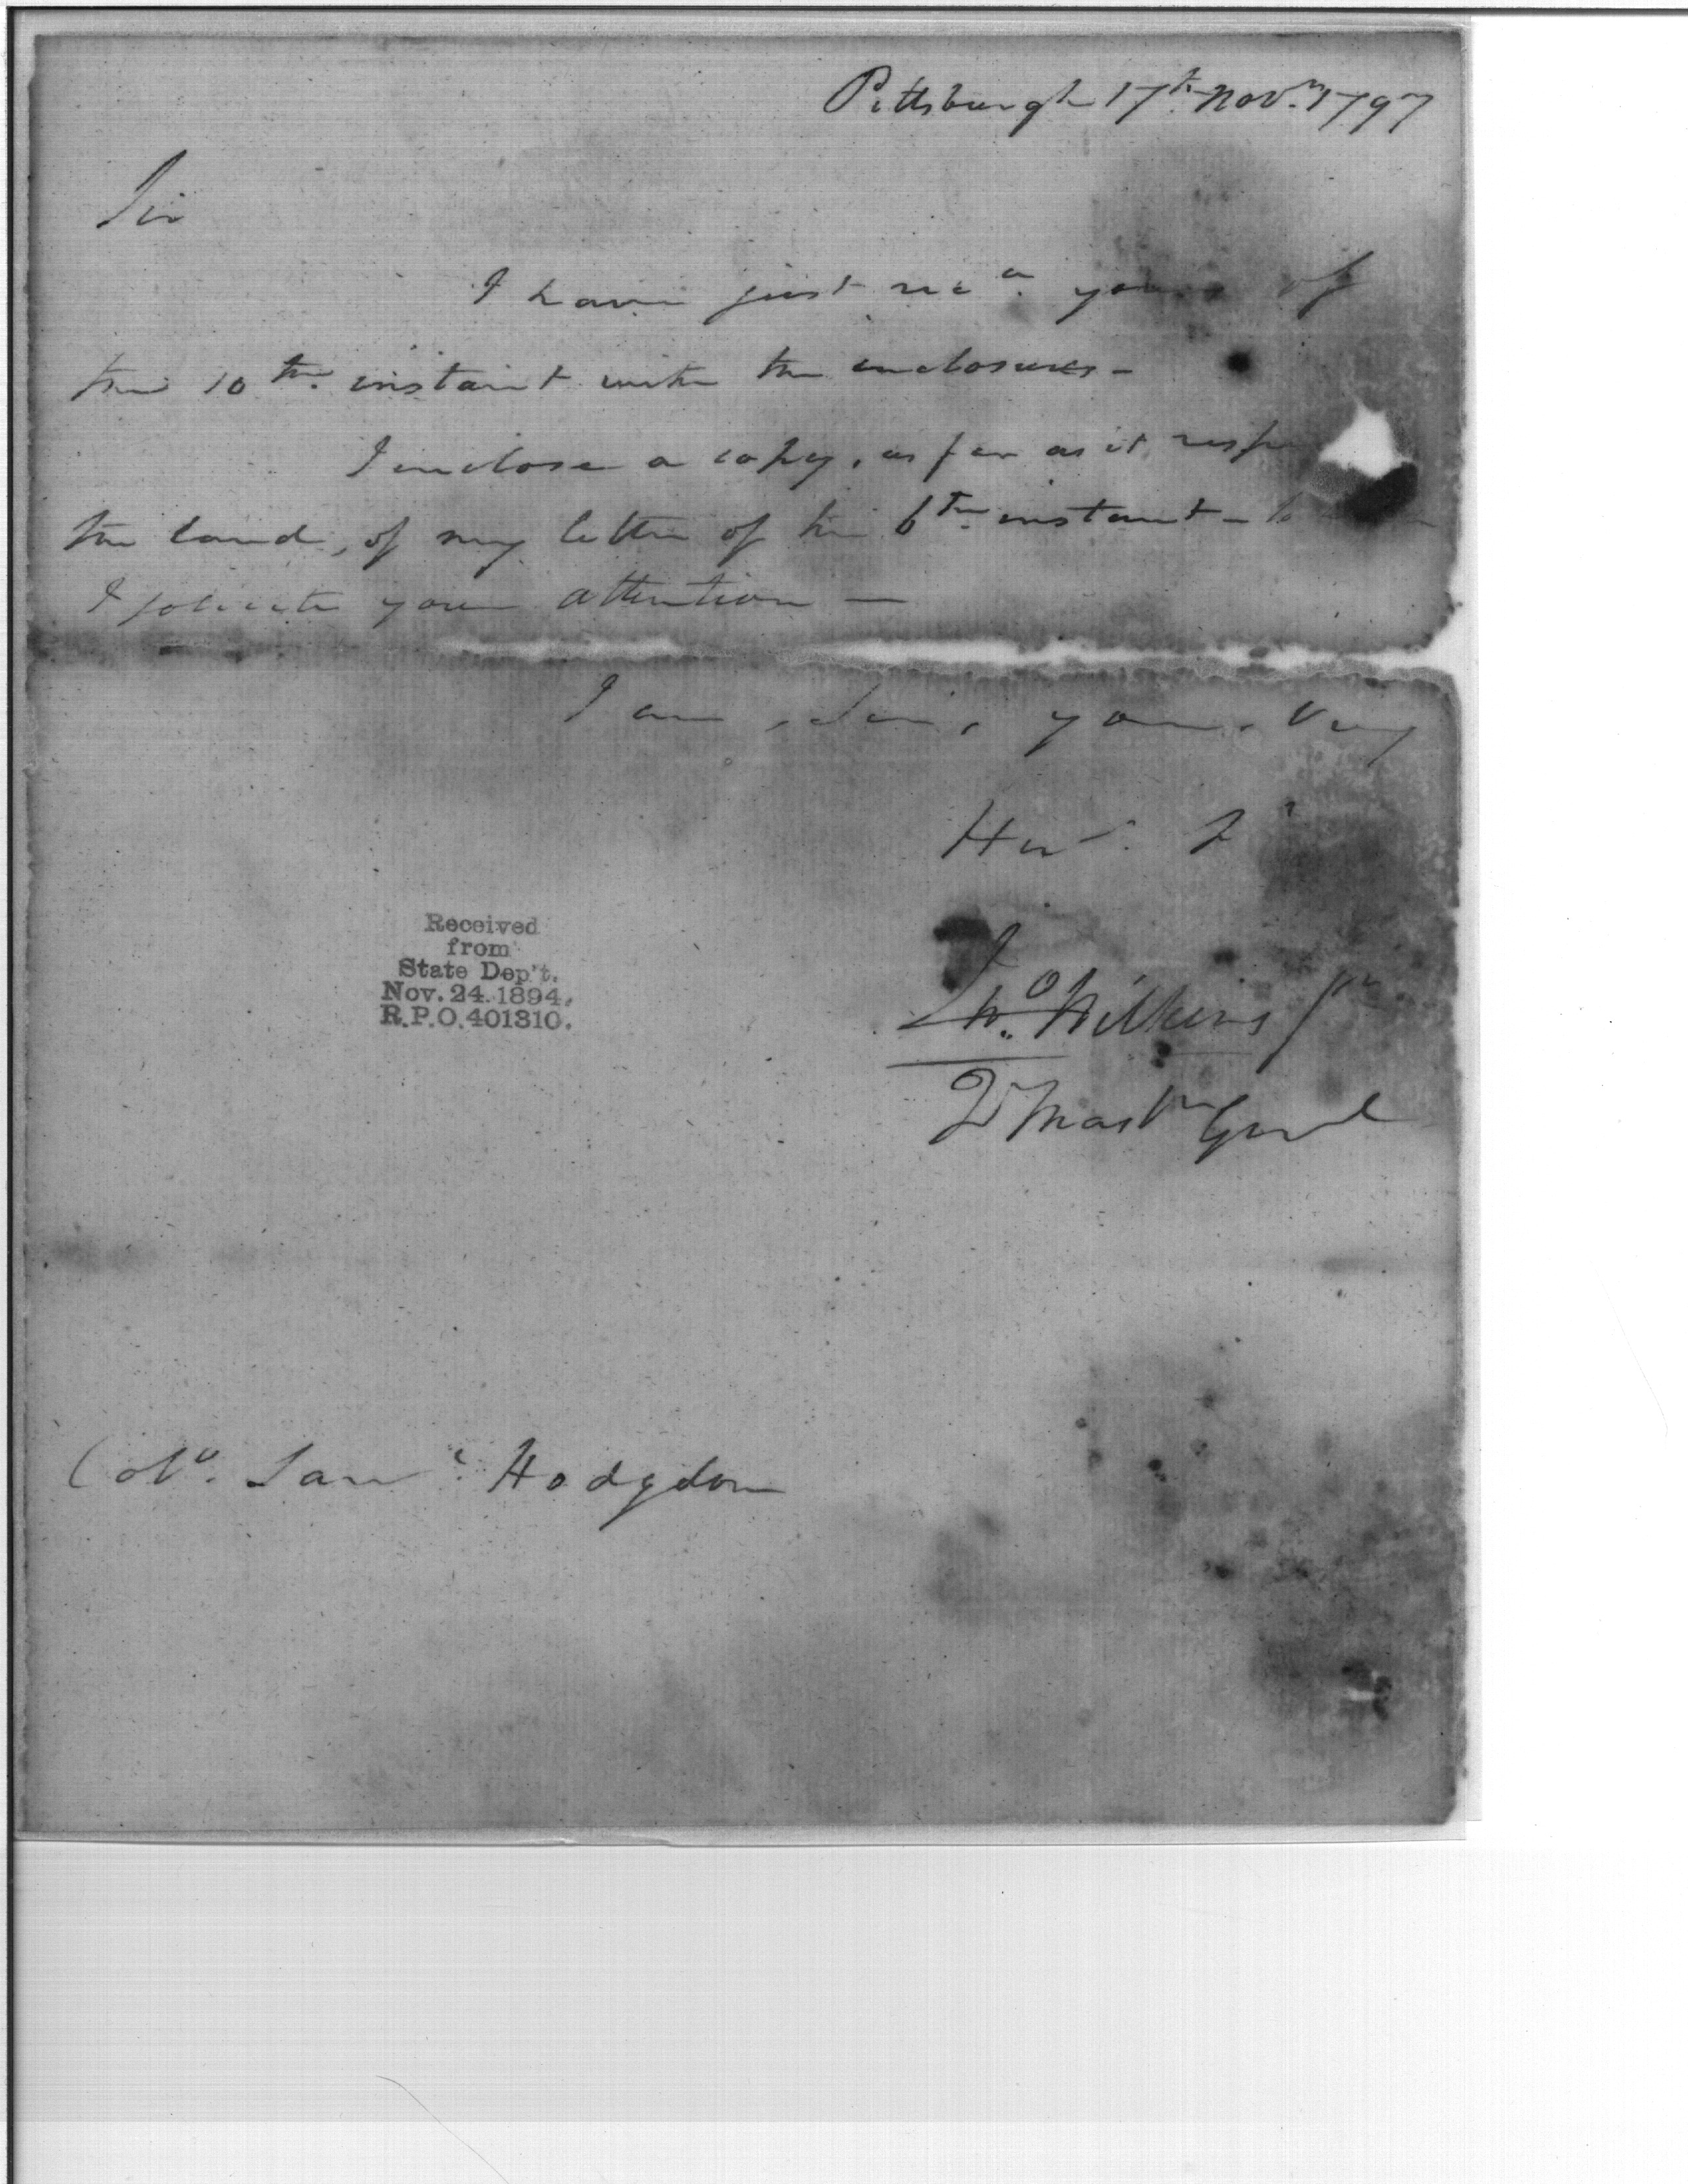 Pittsburgh 17th. Novr. 1797
Sir
I have just recd. yours of
the 10th. instant with the enclosures -
I enclose a copy, as far as it resp
the land, of my letter of the 6th. instant - to
I solicite your attention —
I am, Sir, your Very
Hue.
Received
from
State Dep't.
Nov. 24. 1894.
R.P.O. 401310.
Jno. Wilkins Jr
Qr Mastr Genl
Colo. Saml. Hodgdon